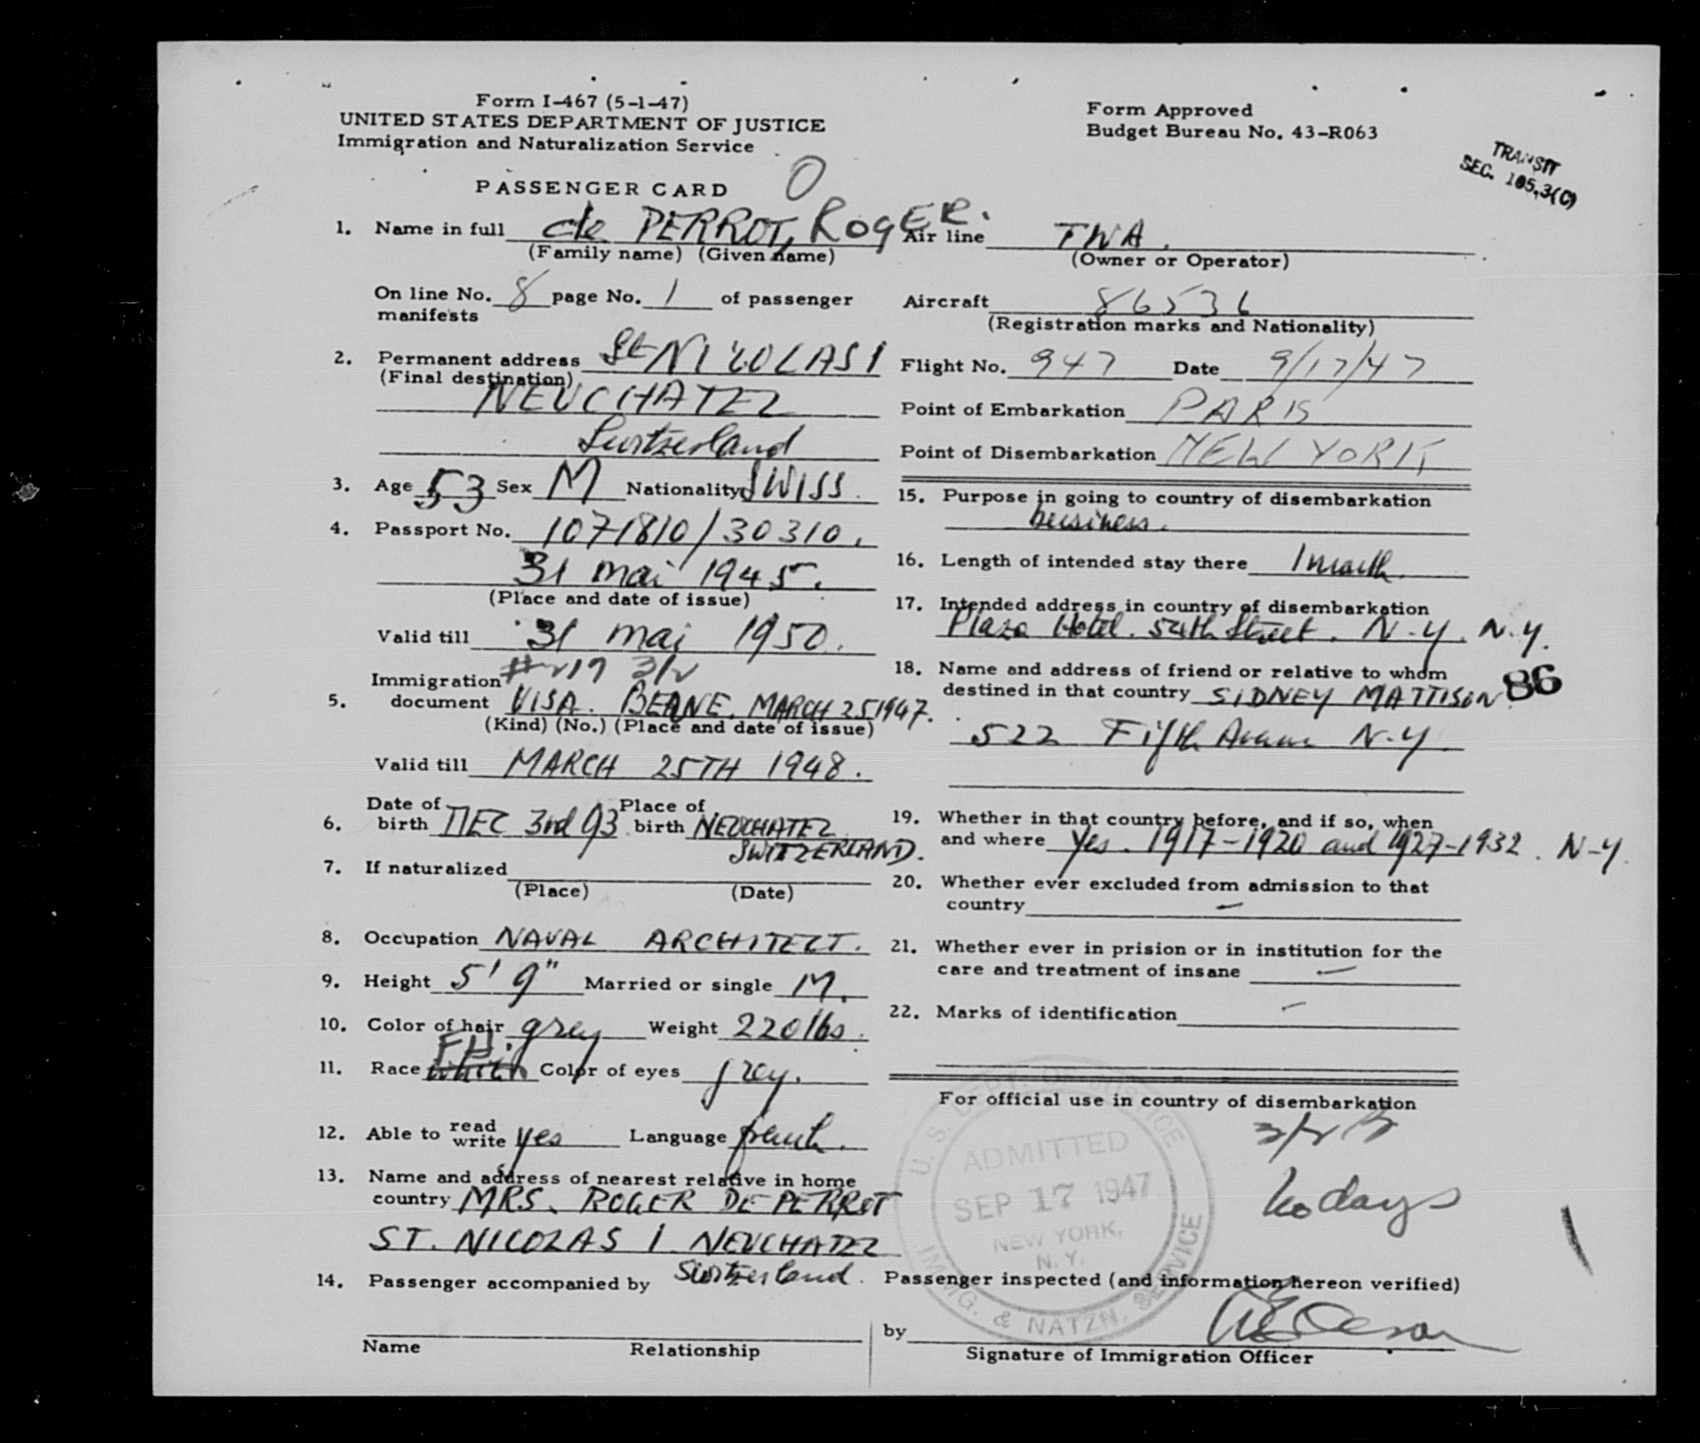 Form I-467 (5-1-47)
UNITED STATES DEPARTMENT OF JUSTICE
Immigration and Naturalization Service
Form Approved
Budget Bureau No. 43-R063
TRANSIT
SEC. 105.3(C)
PASSENGER CARD
O
1. Name in full de PERROT, RogER.
(Family name) (Given name)
On line No. 8 page No. 1 of passenger
manifests
2. Permanent address St NICOLAS 1
(Final destination)
NEUCHATEL
Switzerland
3. Age 53 Sex M Nationality SWISS
4. Passport No. 1071810/30310.
31 mai 1945.
(Place and date of issue)
Valid till 31 mai 1950.
Immigration
5. document VISA. BERNE. MARCH 25 1947.
(Kind) (No.) (Place and date of issue)
Valid till MARCH 25TH 1948.
6. Date of birth DEC 3rd 93 Place of birth NEUCHATEL
SWITZERLAND.
7. If naturalized
(Place) (Date)
8. Occupation NAVAL ARCHITECT.
9. Height 5' 9" Married or single M.
10. Color of hair grey Weight 220 lbs.
11. Race white Color of eyes grey.
12. Able to read write yes Language french.
13. Name and address of nearest relative in home
country MRS. ROGER DE PERROT
ST. NICOLAS 1 NEUCHATEL
Switzerland.
14. Passenger accompanied by
Name Relationship
Air line TWA.
(Owner or Operator)
Aircraft 86536
(Registration marks and Nationality)
Flight No. 947 Date 9/17/47
Point of Embarkation PARIS
Point of Disembarkation NEW YORK
15. Purpose in going to country of disembarkation
business.
16. Length of intended stay there 1 month
17. Intended address in country of disembarkation
Plaza Hotel. 54th Street. N.Y. N.Y.
18. Name and address of friend or relative to whom
destined in that country SIDNEY MATTISON
86
522 Fifth Avenue N.Y.
19. Whether in that country before, and if so, when
and where Yes. 1917-1920 and 1927-1932. N-Y.
20. Whether ever excluded from admission to that
country —
21. Whether ever in prision or in institution for the
care and treatment of insane —
22. Marks of identification —
For official use in country of disembarkation
60 days
U.S. DEPT. OF JUSTICE
ADMITTED
SEP 17 1947
NEW YORK,
N.Y.
IMMG. & NATZN. SERVICE
Passenger inspected (and information hereon verified)
by
Signature of Immigration Officer